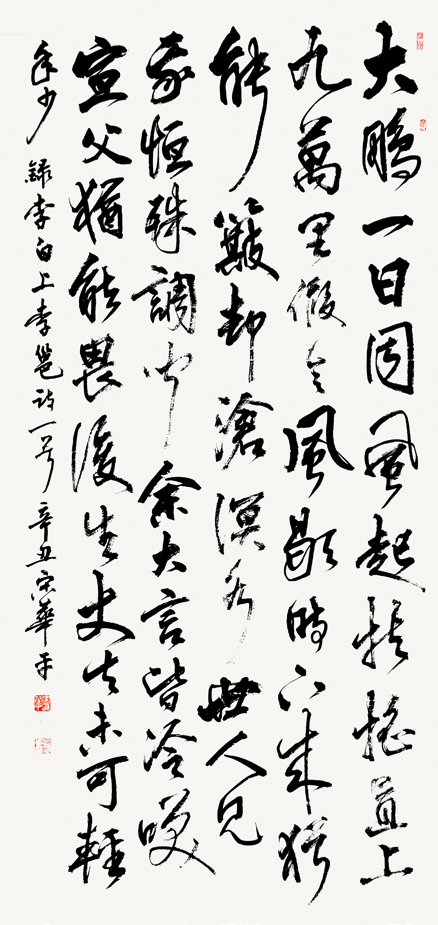 大鵬一日因風起扶搖直上
九萬里假令風歇時下來猶
能簸却滄溟水世人見
我恒殊調聞余大言皆冷咲
宣父猶能畏後生丈夫未可輕
年少 錄李白上李邕詩一首 辛丑宋華平